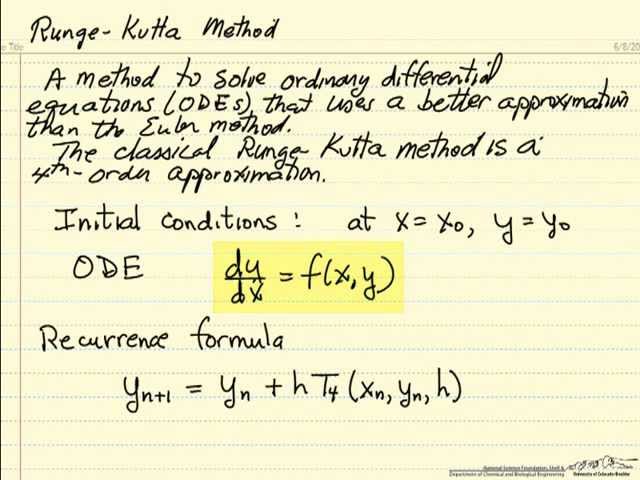 Runge-Kutta Method
e Title
6/8/20
A method to solve ordinary differential
equations (ODEs) that uses a better approximation
than the Euler method.
The classical Runge-Kutta method is a
4th-order approximation.
Initial conditions: at x = x₀, y = y₀
ODE dy/dx = f(x, y)
Recurrence formula
yₙ₊₁ = yₙ + h T₄ (xₙ, yₙ, h)
Department of Chemical and Biological Engineering
University of Colorado Boulder